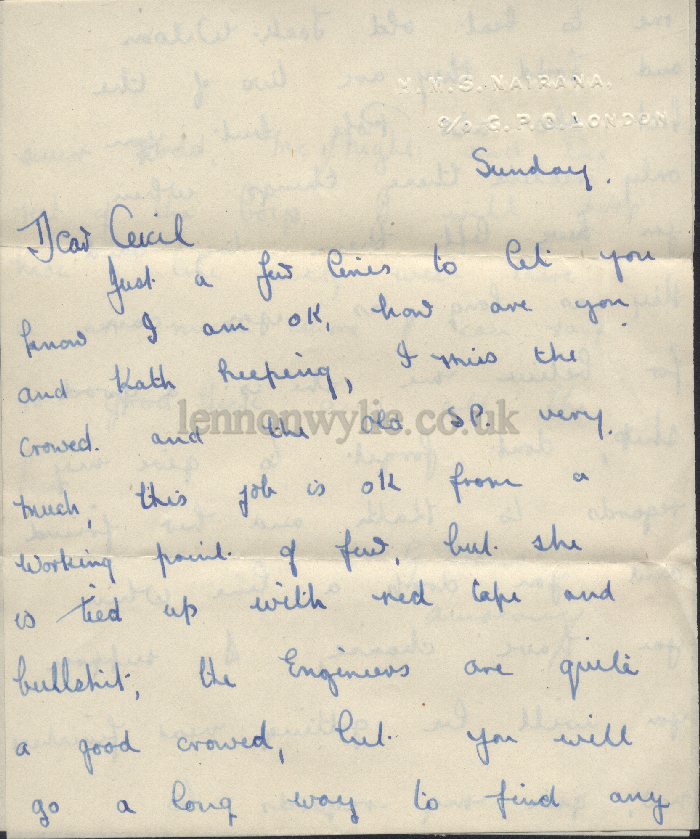 H.M.S. NAIRANA.
c/o G.P.O. LONDON
Sunday.
Dear Cecil
Just a few lines to let you
know I am OK, how are you
and Kath keeping, I miss the
crowed. and the old SP. very.
much, this job is OK from a
working point of few, but she
is tied up with red tape and
bullshit, the Engineers are quite
a good crowed, but you will
go a long way to find any
lennonwylie.co.uk